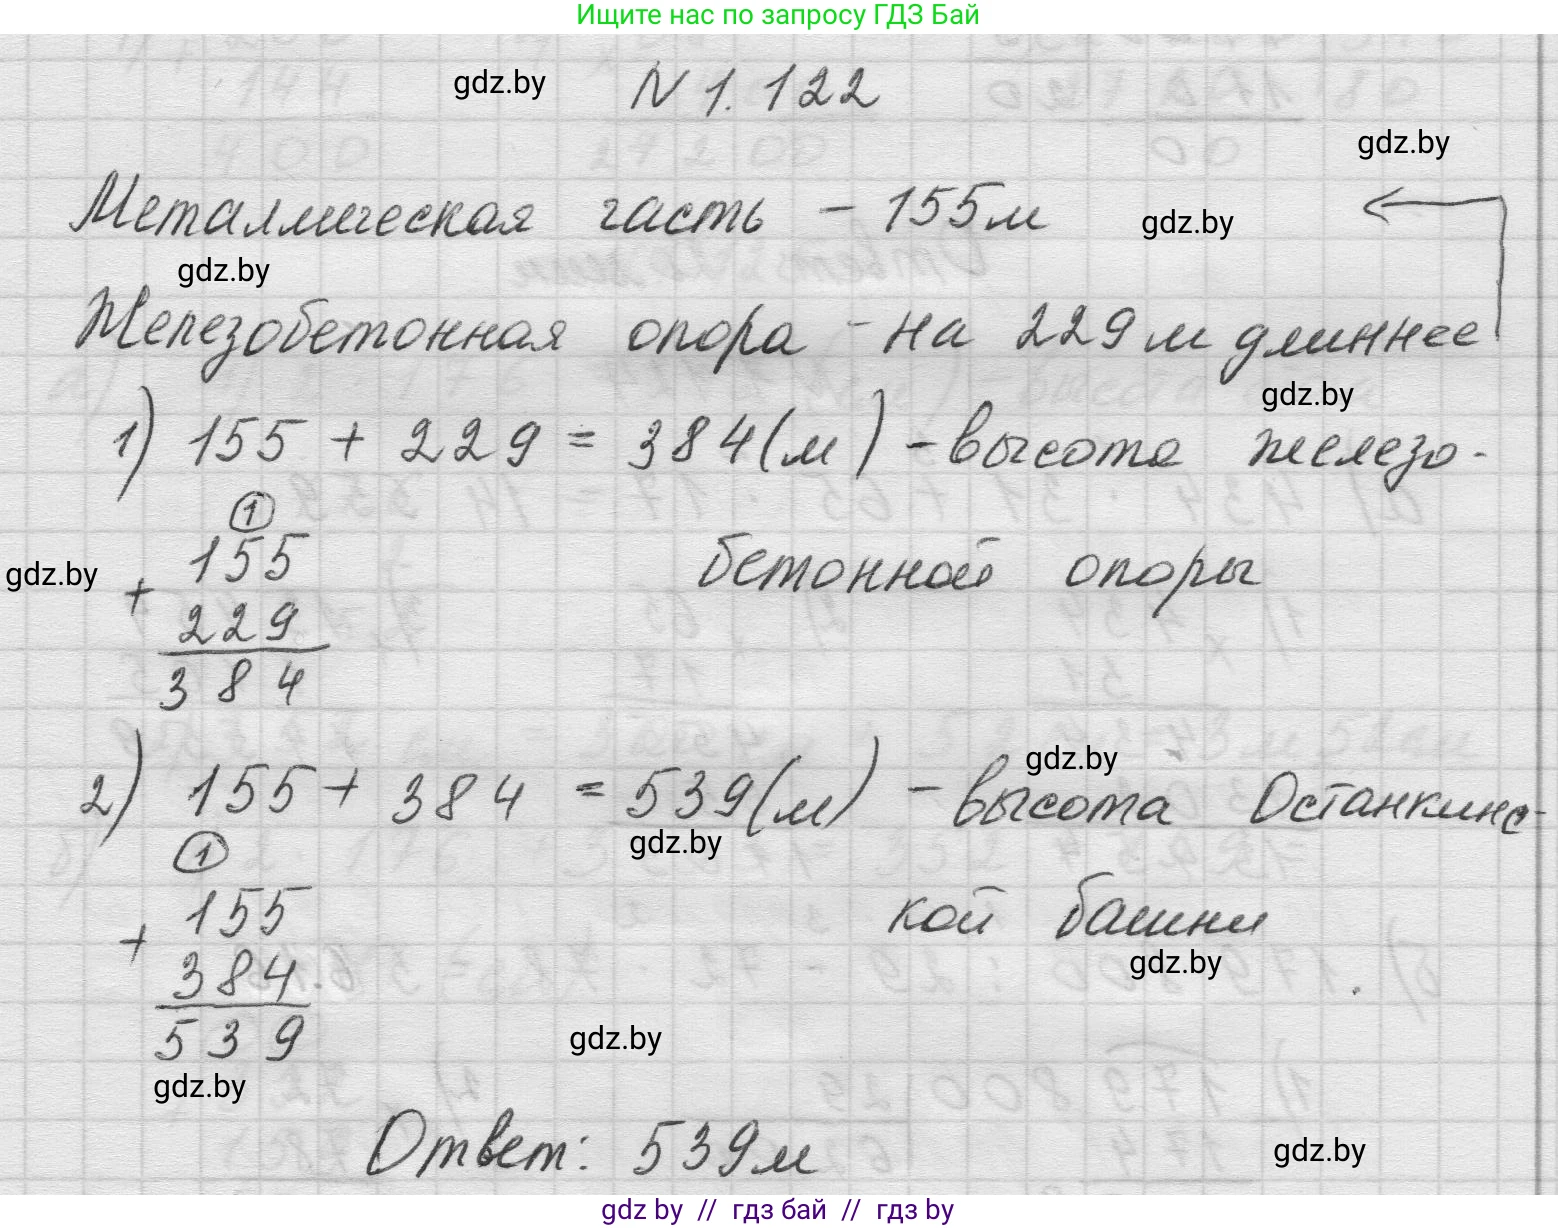 Ищите нас по запросу ГДЗ Бай
gdz.by
N 1.122
gdz.by
Металлическая часть - 155м
gdz.by
gdz.by
Железобетонная опора - на 229м длиннее
gdz.by
1) 155 + 229 = 384(м) - высота железо-
1
155
бетонной опоры
gdz.by
+
229
384
gdz.by
2) 155 + 384 = 539(м) - высота Останкинс-
gdz.by
1
155
кой башни
+
gdz.by
384
539
gdz.by
gdz.by
Ответ: 539м
gdz.by
gdz by // гдз бай // гдз by